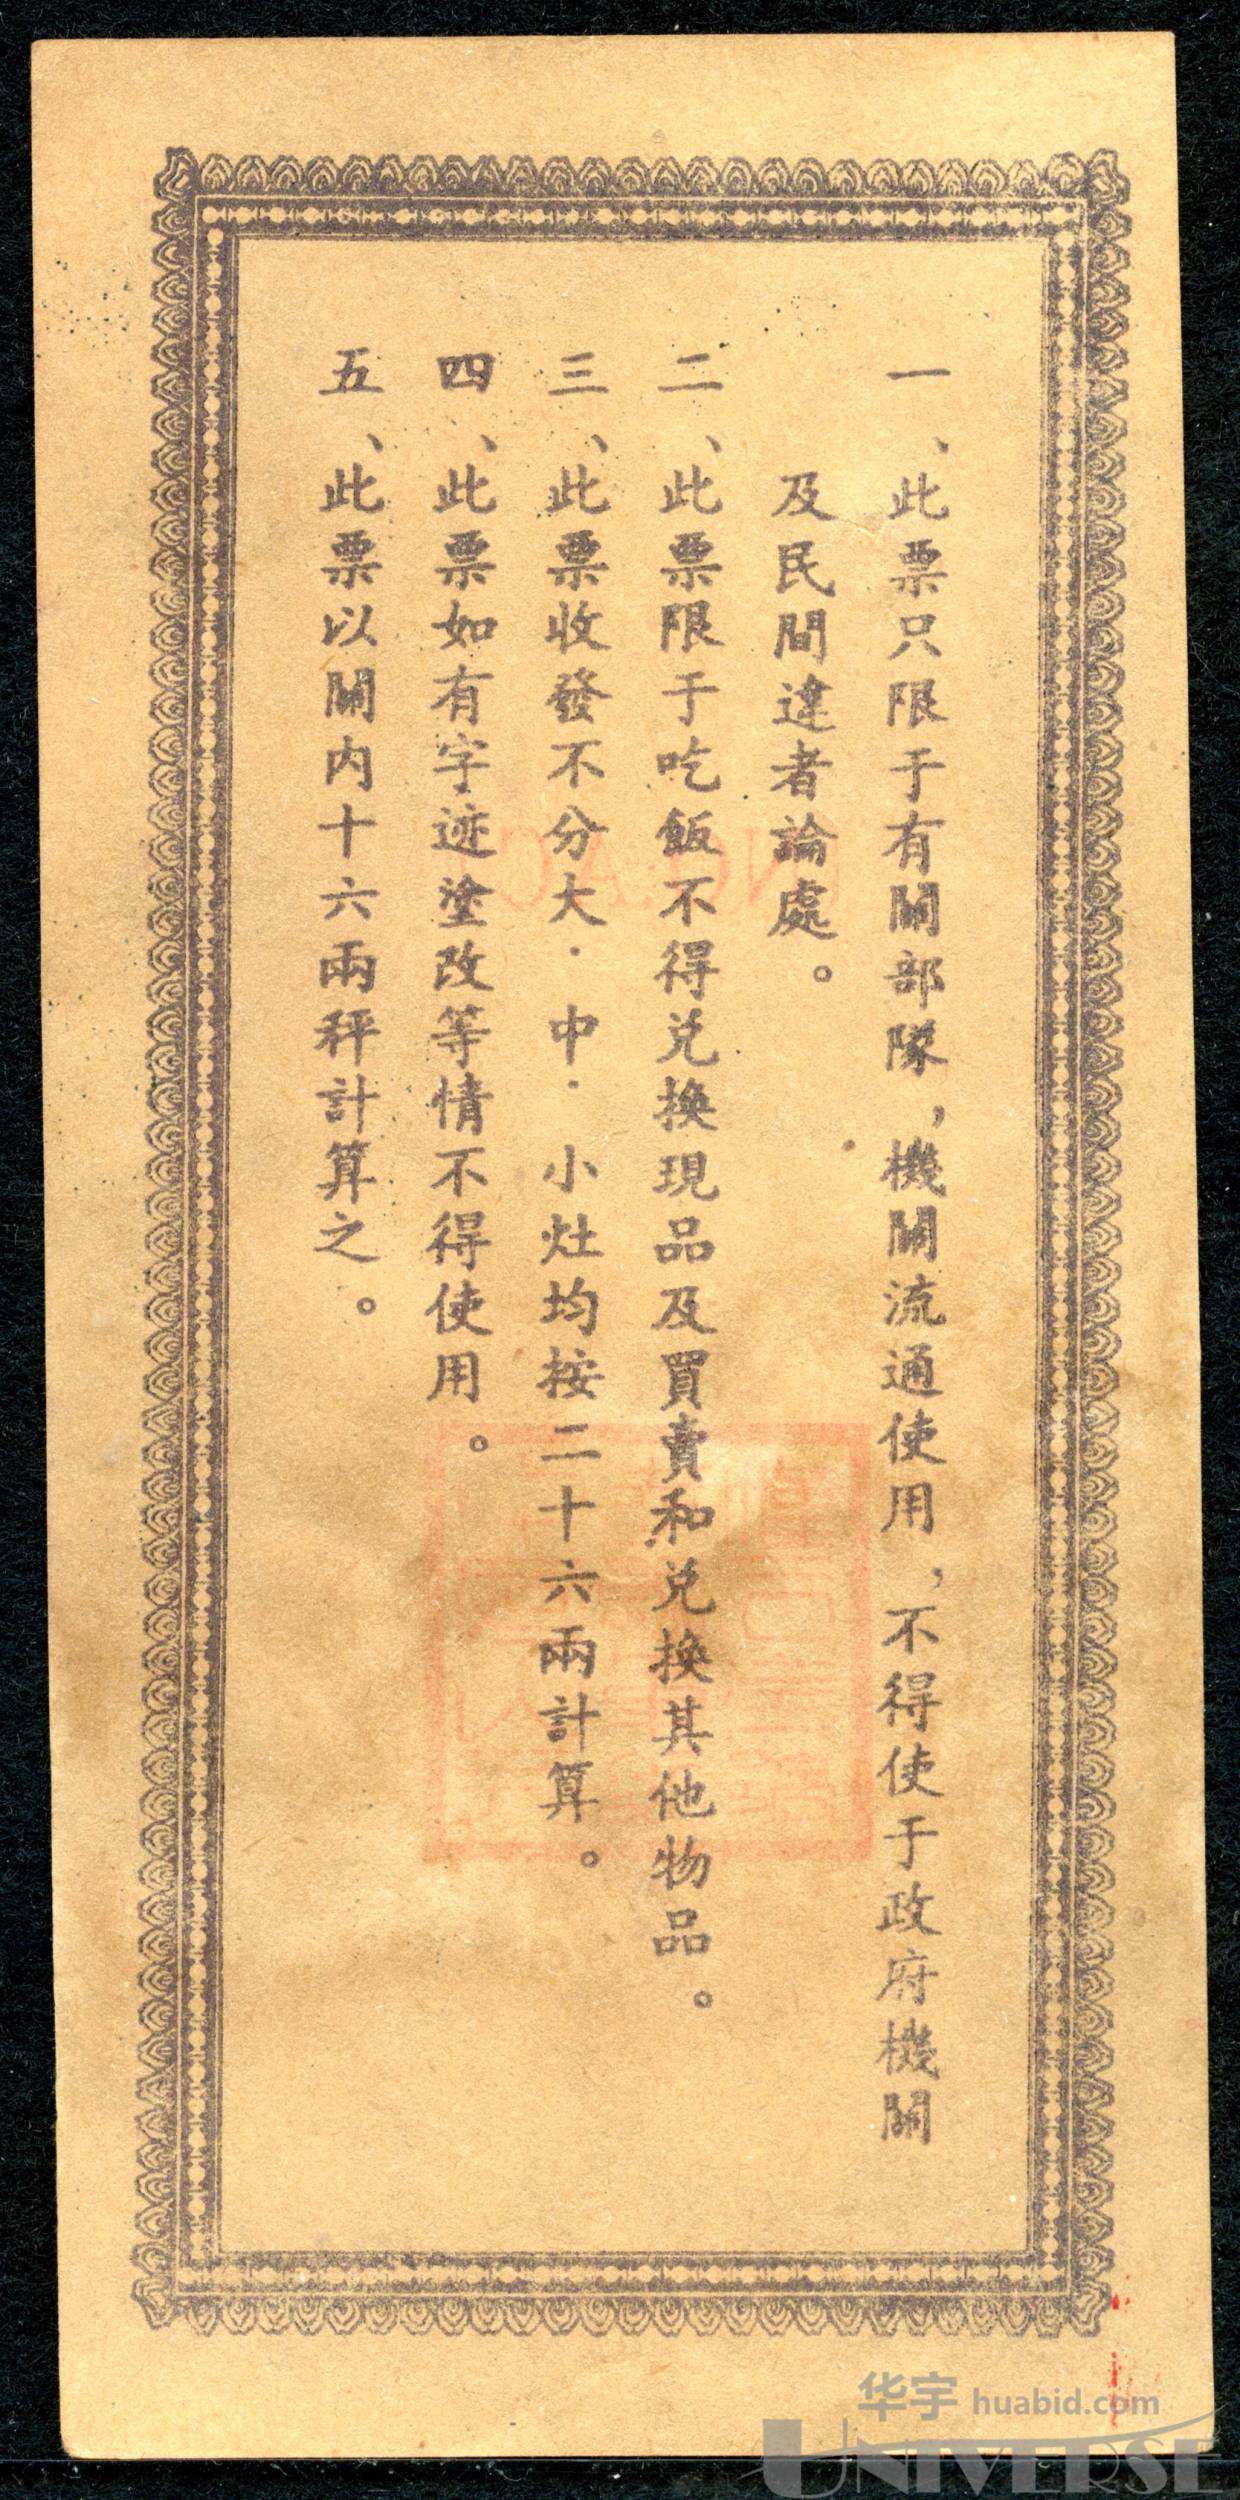 一、此票只限于有關部隊，機關流通使用，不得使于政府機關
及民間違者論處。
二、此票限于吃飯不得兑換現品及買賣和兑換其他物品。
三、此票收發不分大．中．小灶均按二十六兩計算。
四、此票如有字迹塗改等情不得使用。
五、此票以關内十六兩秤計算之。
华宇 huabid.com
UNIVERSE